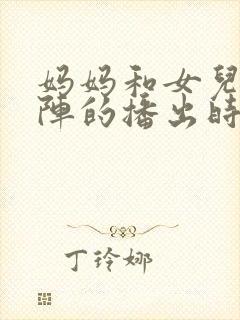 妈妈和女兒
陣的播出時
丁玲娜